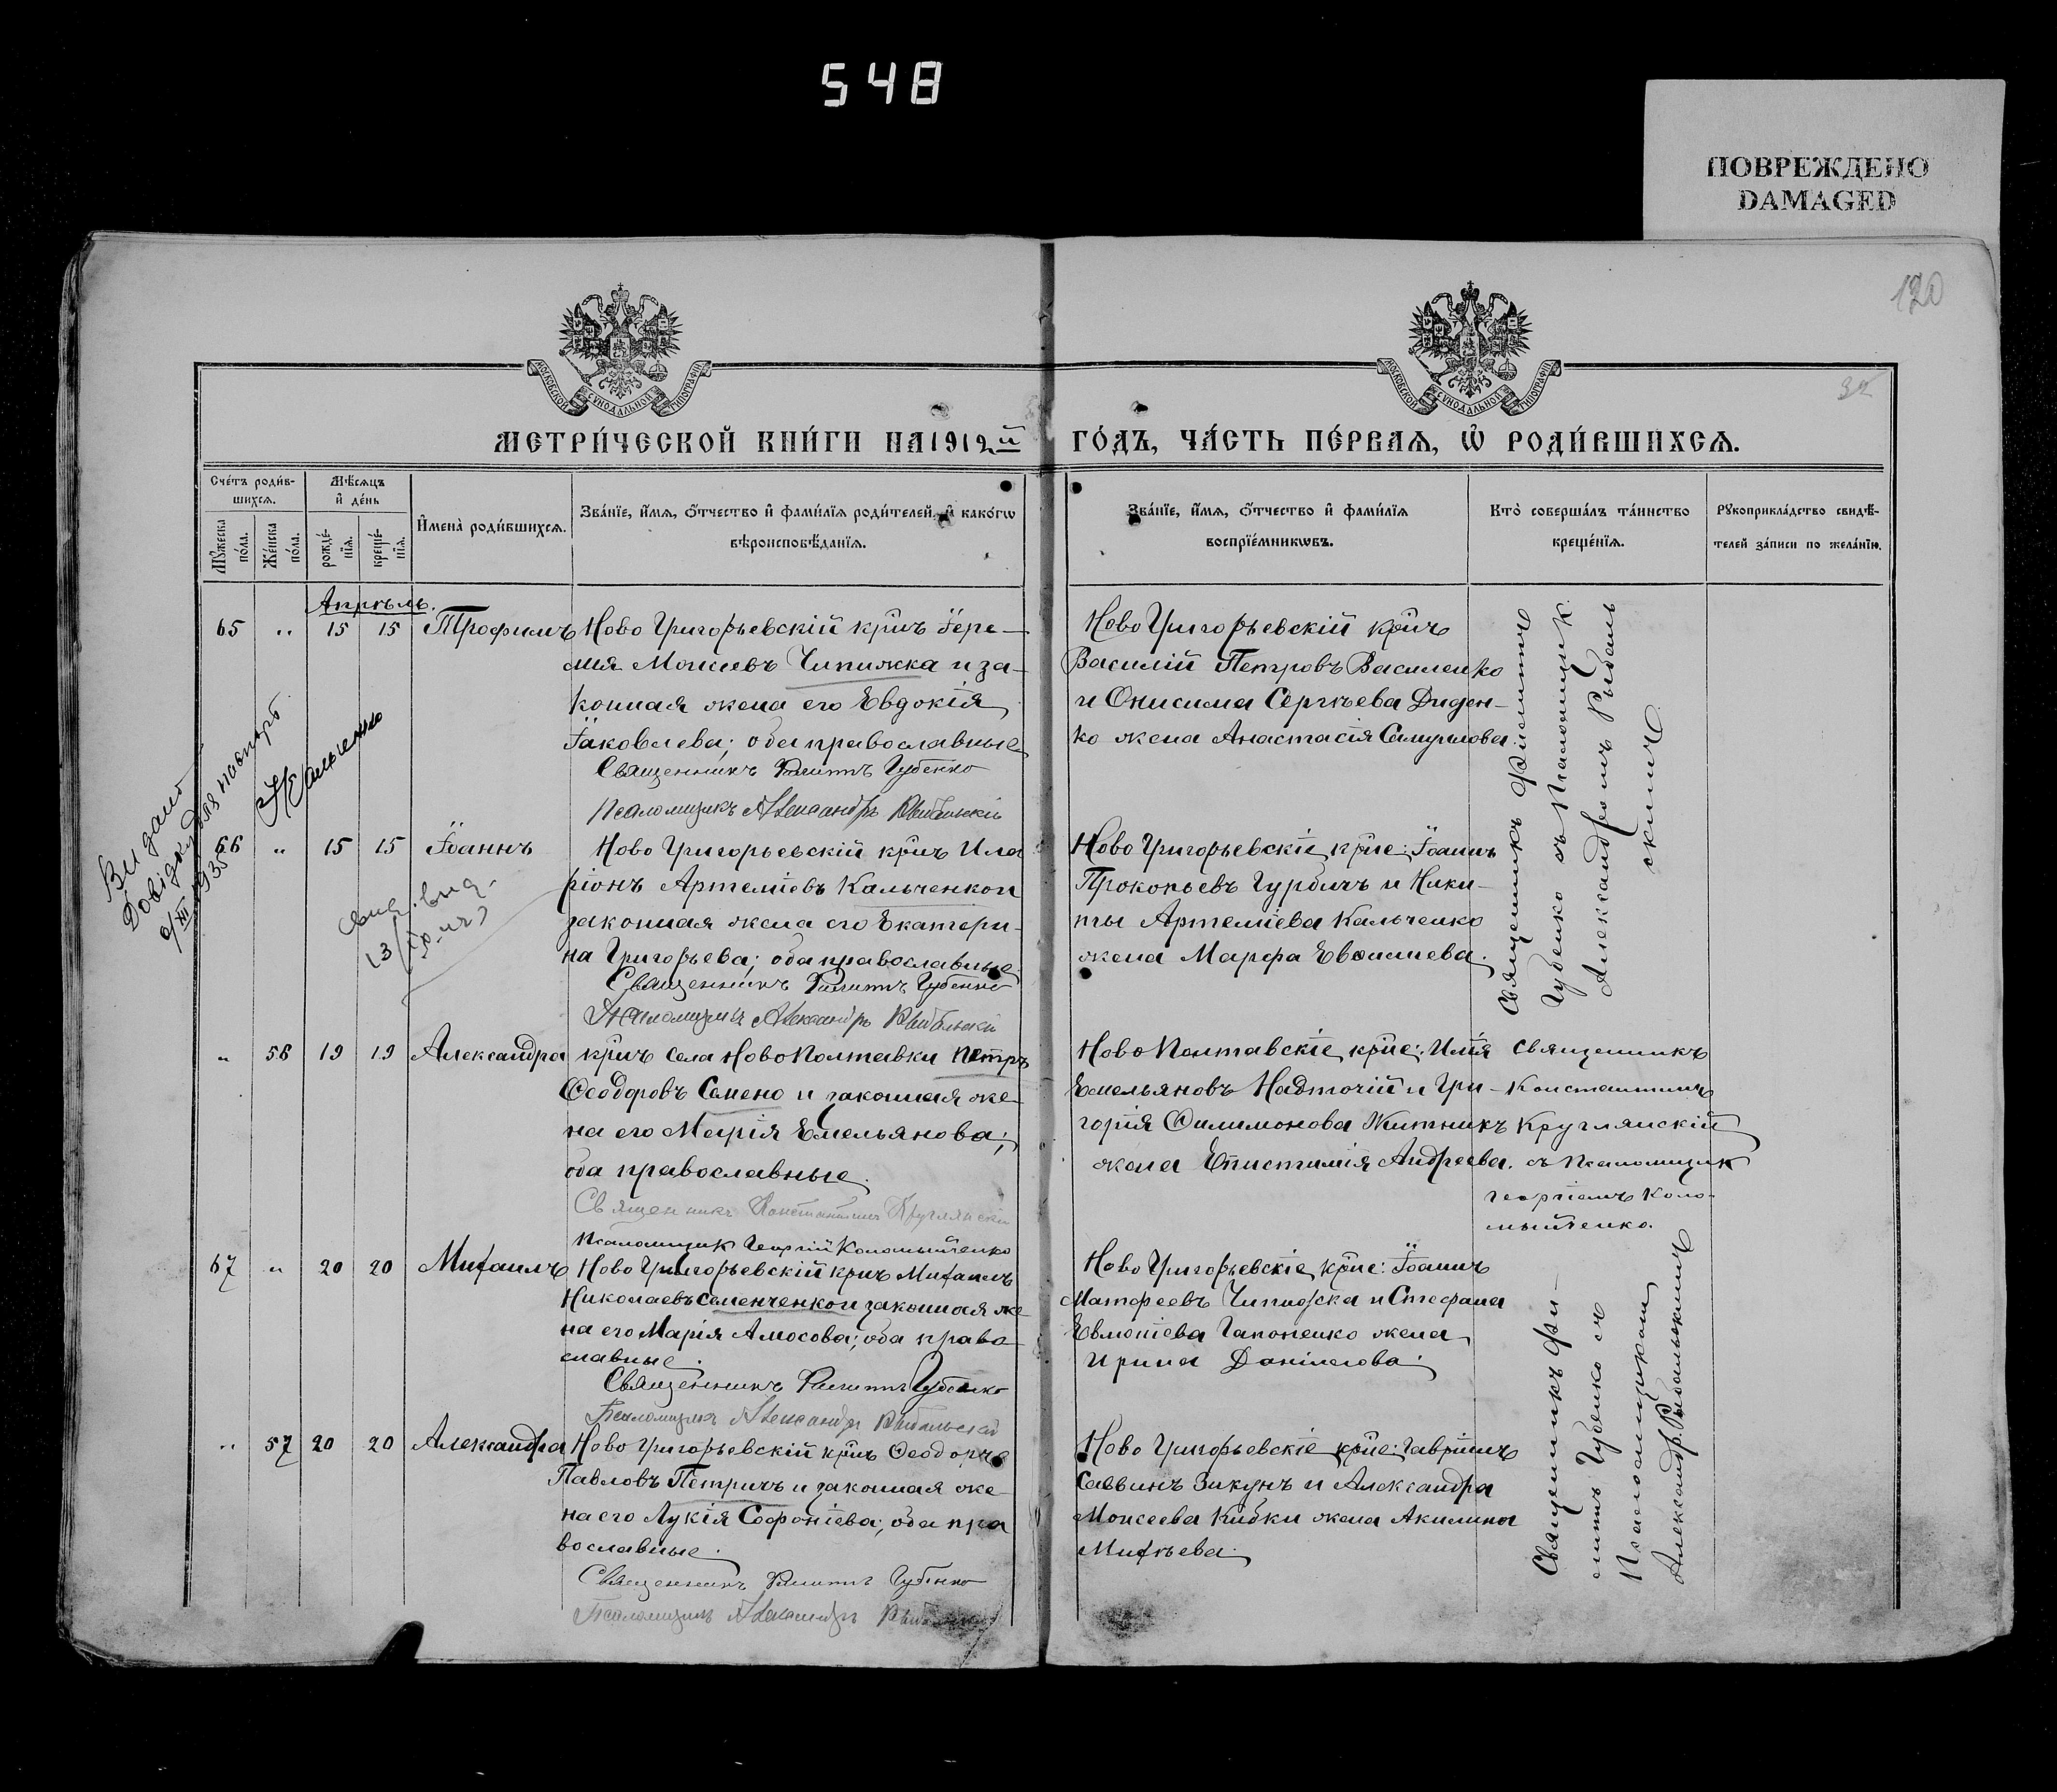 548
ПОВРЕЖДЕНО
DAMAGED
120
32
МОСКОВСКОЙ СѴНОДАЛЬНОЙ ТИПОГРАФІИ
МОСКОВСКОЙ СѴНОДАЛЬНОЙ ТИПОГРАФІИ
МЕТРИ́ЧЕСКОЙ КНИ́ГИ НА 1912й ГО́ДЪ, ЧА́СТЬ ПЕ́РВАѦ, Ѡ҆ РОДИ́ВШИХСѦ.
Сче́тъ роди́в-
шихсѧ.
Мѣ́сѧцъ
и҆ де́нь
Мꙋ́жеска
по́ла.
Же́нска
по́ла.
рожде́-
нїѧ.
креще́-
нїѧ.
И҆мена̀ роди́вшихсѧ.
Зва́нїе, и҆́мѧ, о҆́тчество и҆ фами́лїѧ роди́телей, и҆ како́гѡ
вѣроисповѣ́данїѧ.
Зва́нїе, и҆́мѧ, о҆́тчество и҆ фами́лїѧ
воспрїе́мникѡвъ.
Кто̀ соверша́лъ та́инство
креще́нїѧ.
Рꙋкоприкла́дство свидѣ́-
телей за́писи по жела́нїю.
Апрѣль.
65 " 15 15 Трофимъ
Ново Григорьевскій кр̃нъ Іере-
мія Моисеевъ Чипижка и за-
конная жена его Евдокія
Іаковлева; оба православные
Священникъ Филиппъ Губенко
Псаломщикъ Александръ Рыбальскій
Ново Григорьевскій кр̃нъ
Василій Петровъ Василенко
и Онисима Сергѣева Диден-
ко жена Анастасія Самуилова.
Священникъ Филиппъ
Губенко съ Псаломщик.
Александромъ Рыбаль
скимъ
Видано
Довідку для паспорт
6/XII 1935
66 " 15 15 Іоаннъ
Ново Григорьевскій кр̃нъ Ила
ріонъ Артеміевъ Кальченко и
законная жена его Екатери-
на Григорьева; оба православные.
Священникъ Филиппъ Губенко
Псаломщикъ Александръ Рыбальскій
Ново Григорьевскіе кр̃не: Іоаннъ
Прокопьевъ Гурбичъ и Ники-
ты Артеміева Кальченко
жена Марфа Евѳиміева.
" 56 19 19 Александра
кр̃нъ села Ново Полтавки Петръ
Ѳеодоровъ Семено и законная же-
на его Марія Емельянова;
оба православные.
Священникъ Константинъ Круглянскій
Псаломщик Георгій Коломыйченко
Ново Полтавскіе кр̃не: Илія
Емельяновъ Надточій и Гри-
горія Филимонова Житникъ
жена Епистимія Андреева.
Священникъ
Константинъ
Круглянскій
съ Псаломщик
Георгіемъ Коло-
мыйченко.
67 " 20 20 Михаилъ
Ново Григорьевскій кр̃нъ Михаилъ
Николаевъ Семенченко и законная же
на его Марія Амосова; оба право-
славные.
Священникъ Филиппъ Губенко
Псаломщикъ Александръ Рыбальскій
Ново Григорьевскіе кр̃не: Іоаннъ
Матфеевъ Чипижка и Стефана
Евменіева Гапоненко жена
Ирина Даніилова.
Священникъ Фи-
липпъ Губенко съ
Псаломщиком
Александр. Рыбальскимъ
" 57 20 20 Александра
Ново Григорьевскій кр̃нъ Ѳеодоръ
Павловъ Петричъ и законная же
на его Лукія Софоніева; оба пра
вославные.
Священникъ Филиппъ Губенко
Псаломщикъ Александръ Рыбальскій
Ново Григорьевскіе кр̃не: Гавріилъ
Саввинъ Зикунъ и Александра
Моисеева Кибки жена Акилина
Михѣева.